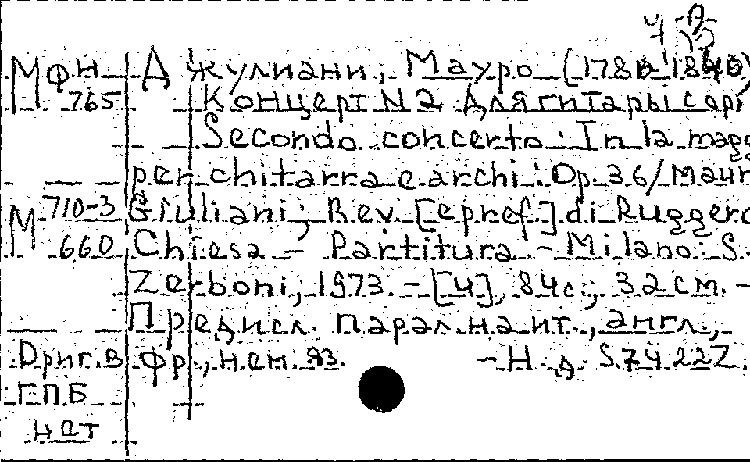 МфН Джулиани, Мауро (
765 Концерт N2 для гитары с орг
Secondo concerto: In la magg
per chitarra e archi: Op. 36/Maur
М 710-3 Giuliani; Rev. [e pref.] di Ruggero
660 Chiesa - Partitura - Milano: S.
Zerboni, 1973. - [4], 84 с.; 32 см. -
Предисл. парал. на ит., англ.,
Ориг. в фр., нем. яз. - Н. д. S.7422Z.
ГПБ
нет